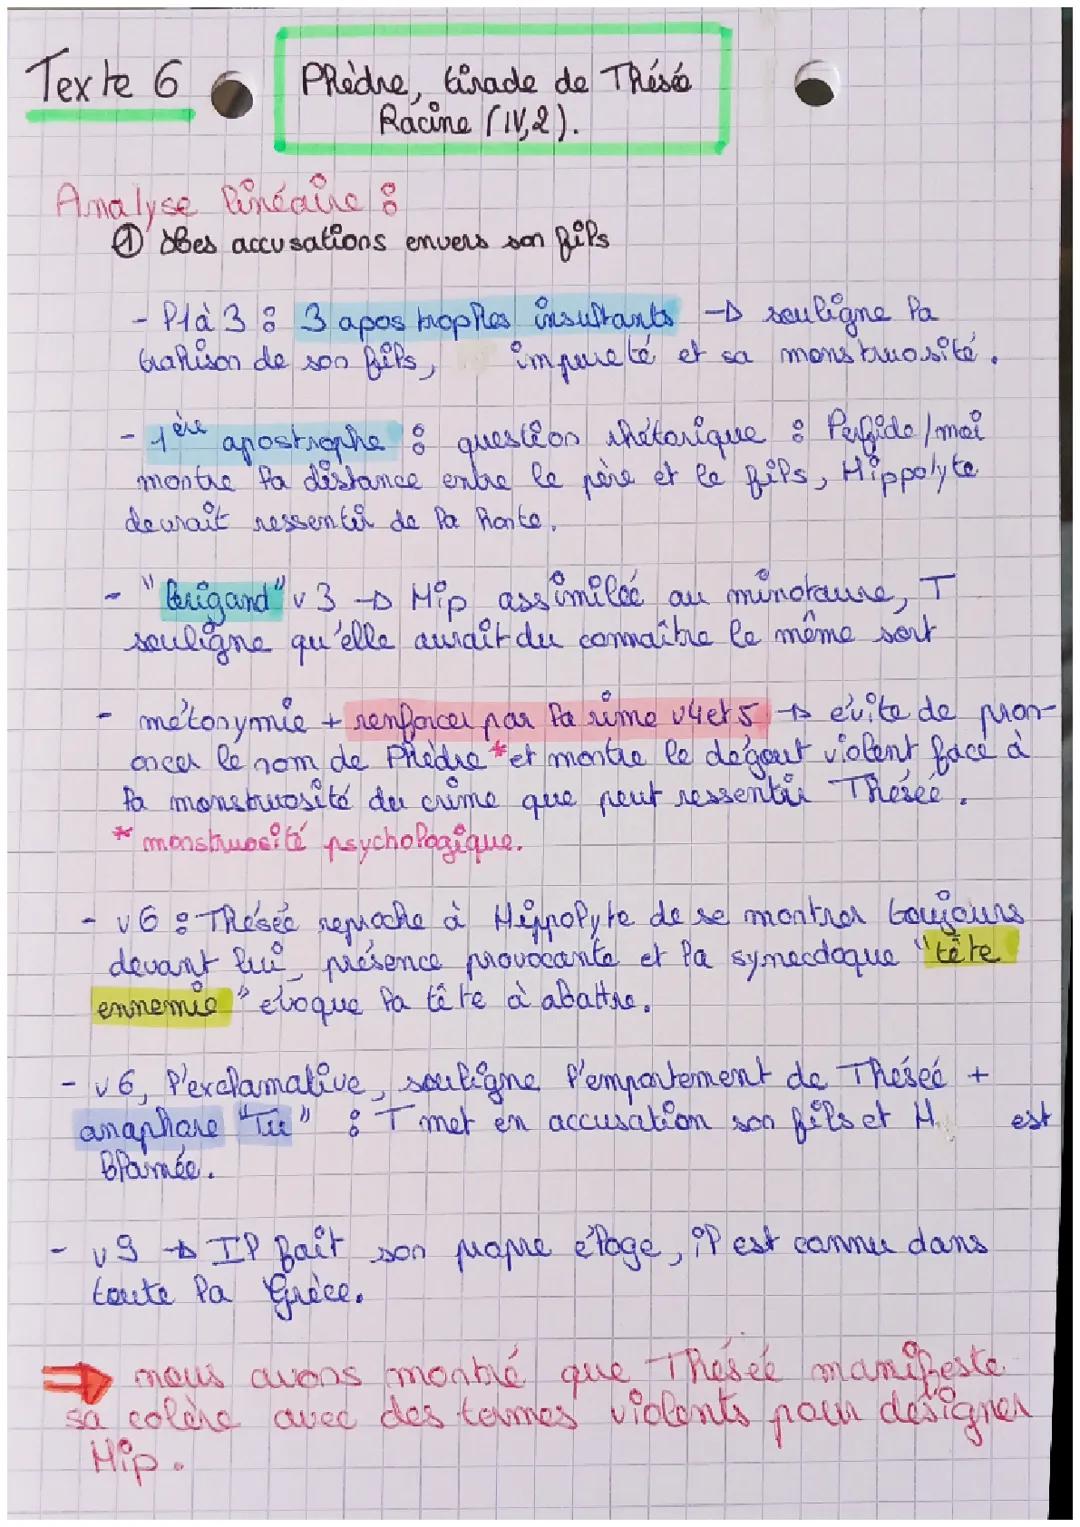 Texte 6
Phèdre, tirade de Thésé
Racine (IV,2).
Analyse linéaire :
① Des accusations envers son fils
- l1 à 3 : 3 apostrophes insultants → souligne la
trahison de son fils, impureté et sa monstruosité.
- 1ère apostrophe : question rhétorique : Perfide/moi
montre la distance entre le père et le fils, Hippolyte
devrait ressentir de la honte.
- "brigand" v 3 → Hip assimilée au minotaure, T
souligne qu'elle aurait du connaître le même sort
- métonymie + renforcer par la rime v4 et 5 → évite de pron-
oncer le nom de Phèdre * et montre le dégout violent face à
la monstruosité du crime que peut ressentir Thésée.
* monstruosité psychologique.
- v 6 : Thésée reproche à Hippolyte de se montrer toujours
devant lui, présence provocante et la synecdoque "tête
ennemie" évoque la tête à abattre.
- v 6, l'exclamative, souligne l'emportement de Thésée +
anaphore "Tu" : T met en accusation son fils et H. est
blamée.
- v 9 → Il fait son propre éloge, il est connu dans
toute la Grèce.
⇒ nous avons montré que Thésée manifeste
sa colère avec des termes violents pour désigner
Hip.